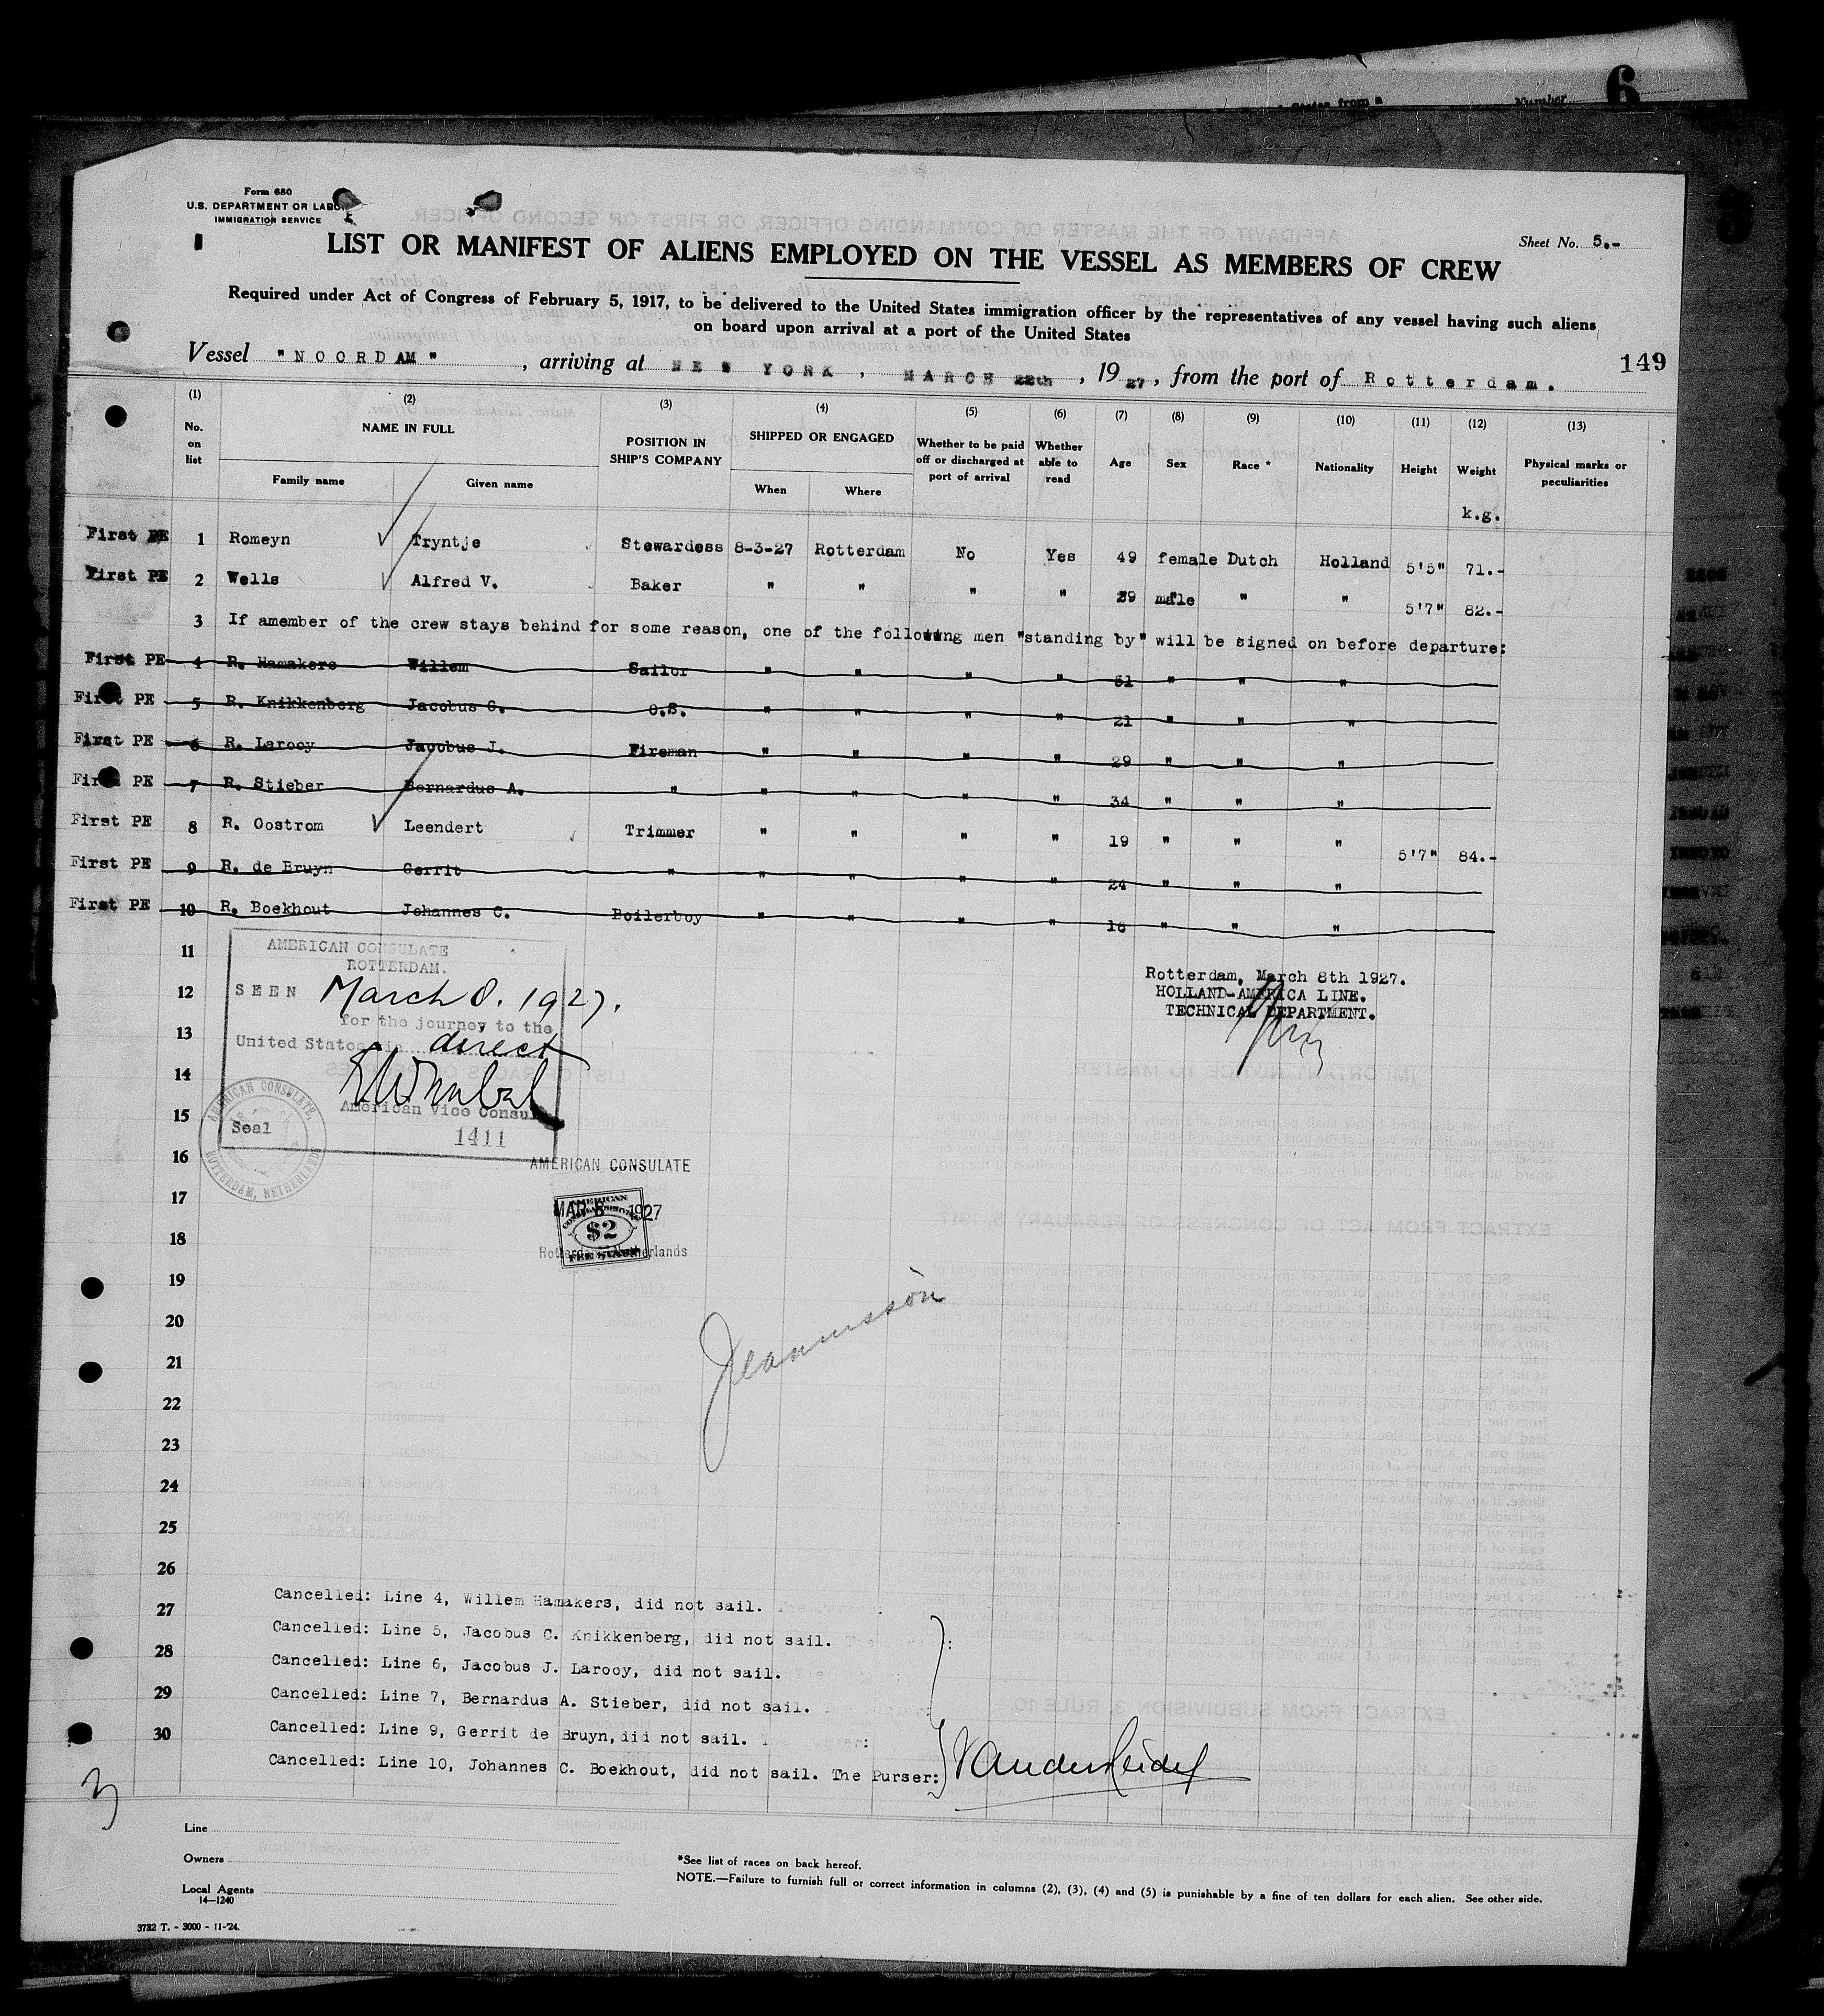 6
Number
States from a
Form 680
U.S. DEPARTMENT OR LABOR
IMMIGRATION SERVICE
Sheet No. 5.-
LIST OR MANIFEST OF ALIENS EMPLOYED ON THE VESSEL AS MEMBERS OF CREW
Required under Act of Congress of February 5, 1917, to be delivered to the United States immigration officer by the representatives of any vessel having such aliens
on board upon arrival at a port of the United States
149
Vessel "NOORDAM", arriving at NEW YORK, MARCH 22th, 1927, from the port of Rotterdam.
(1) (2) (3) (4) (5) (6) (7) (8) (9) (10) (11) (12) (13)
No. on list NAME IN FULL Family name Given name POSITION IN SHIP'S COMPANY SHIPPED OR ENGAGED When Where Whether to be paid off or discharged at port of arrival Whether able to read Age Sex Race * Nationality Height Weight Physical marks or peculiarities
k.g.
First PE 1 Romeyn Tryntje Stewardess 8-3-27 Rotterdam No Yes 49 female Dutch Holland 5'5" 71.-
First PE 2 Wells Alfred V. Baker " " " " 29 male " " 5'7" 82.-
3 If amember of the crew stays behind for some reason, one of the following men "standing by" will be signed on before departure:
First PE 4 R. Hamakers Willem Sailor " " " " 51 " " "
First PE 5 R. Knikkenberg Jacobus C. O.S. " " " " 21 " " "
First PE 6 R. Larooy Jacobus J. Fireman " " " " 29 " " "
First PE 7 R. Stieber Bernardus A. " " " " " 34 " " "
First PE 8 R. Oostrom Leendert Trimmer " " " " 19 " " " 5'7" 84.-
First PE 9 R. de Bruyn Gerrit " " " " " 24 " " "
First PE 10 R. Boekhout Johannes C. Boilerboy " " " " 16 " " "
11
12
13
14
15
16
17
18
19
20
21
22
23
24
25
26
27
28
29
30
AMERICAN CONSULATE
ROTTERDAM.
SEEN March 8. 1927.
for the journey to the
United States via direct
American Vice Consul
Seal
1411
AMERICAN CONSULATE, ROTTERDAM, NETHERLANDS
Rotterdam, March 8th 1927.
HOLLAND-AMERICA LINE.
TECHNICAL DEPARTMENT.
AMERICAN CONSULATE
MAR 8 1927
Rotterdam Netherlands
AMERICAN
CONSULAR SERVICE
$2
FEE STAMP
Cancelled: Line 4, Willem Hamakers, did not sail.
Cancelled: Line 5, Jacobus C. Knikkenberg, did not sail.
Cancelled: Line 6, Jacobus J. Larooy, did not sail.
Cancelled: Line 7, Bernardus A. Stieber, did not sail.
Cancelled: Line 9, Gerrit de Bruyn, did not sail.
Cancelled: Line 10, Johannes C. Boekhout, did not sail. The Purser:
3
Line
Owners
Local Agents
14—1240
*See list of races on back hereof.
NOTE.—Failure to furnish full or correct information in columns (2), (3), (4) and (5) is punishable by a fine of ten dollars for each alien. See other side.
3732 T. - 3000 - 11-'24.